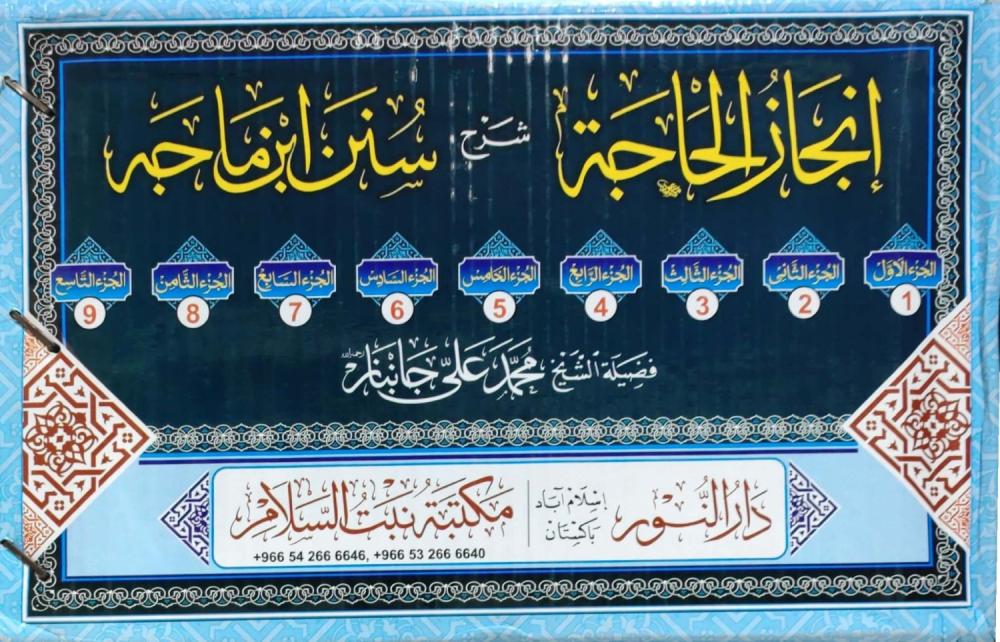 إنجاز الحاجة شرح سنن ابن ماجه
الجزء الأول الجزء الثاني الجزء الثالث الجزء الرابع الجزء الخامس الجزء السادس الجزء السابع الجزء الثامن الجزء التاسع
1 2 3 4 5 6 7 8 9
فضيلة الشيخ محمد علي جانباز رحمه الله
دار النور إسلام آباد باكستان مكتبة بيت السلام
+966 54 266 6646, +966 53 266 6640